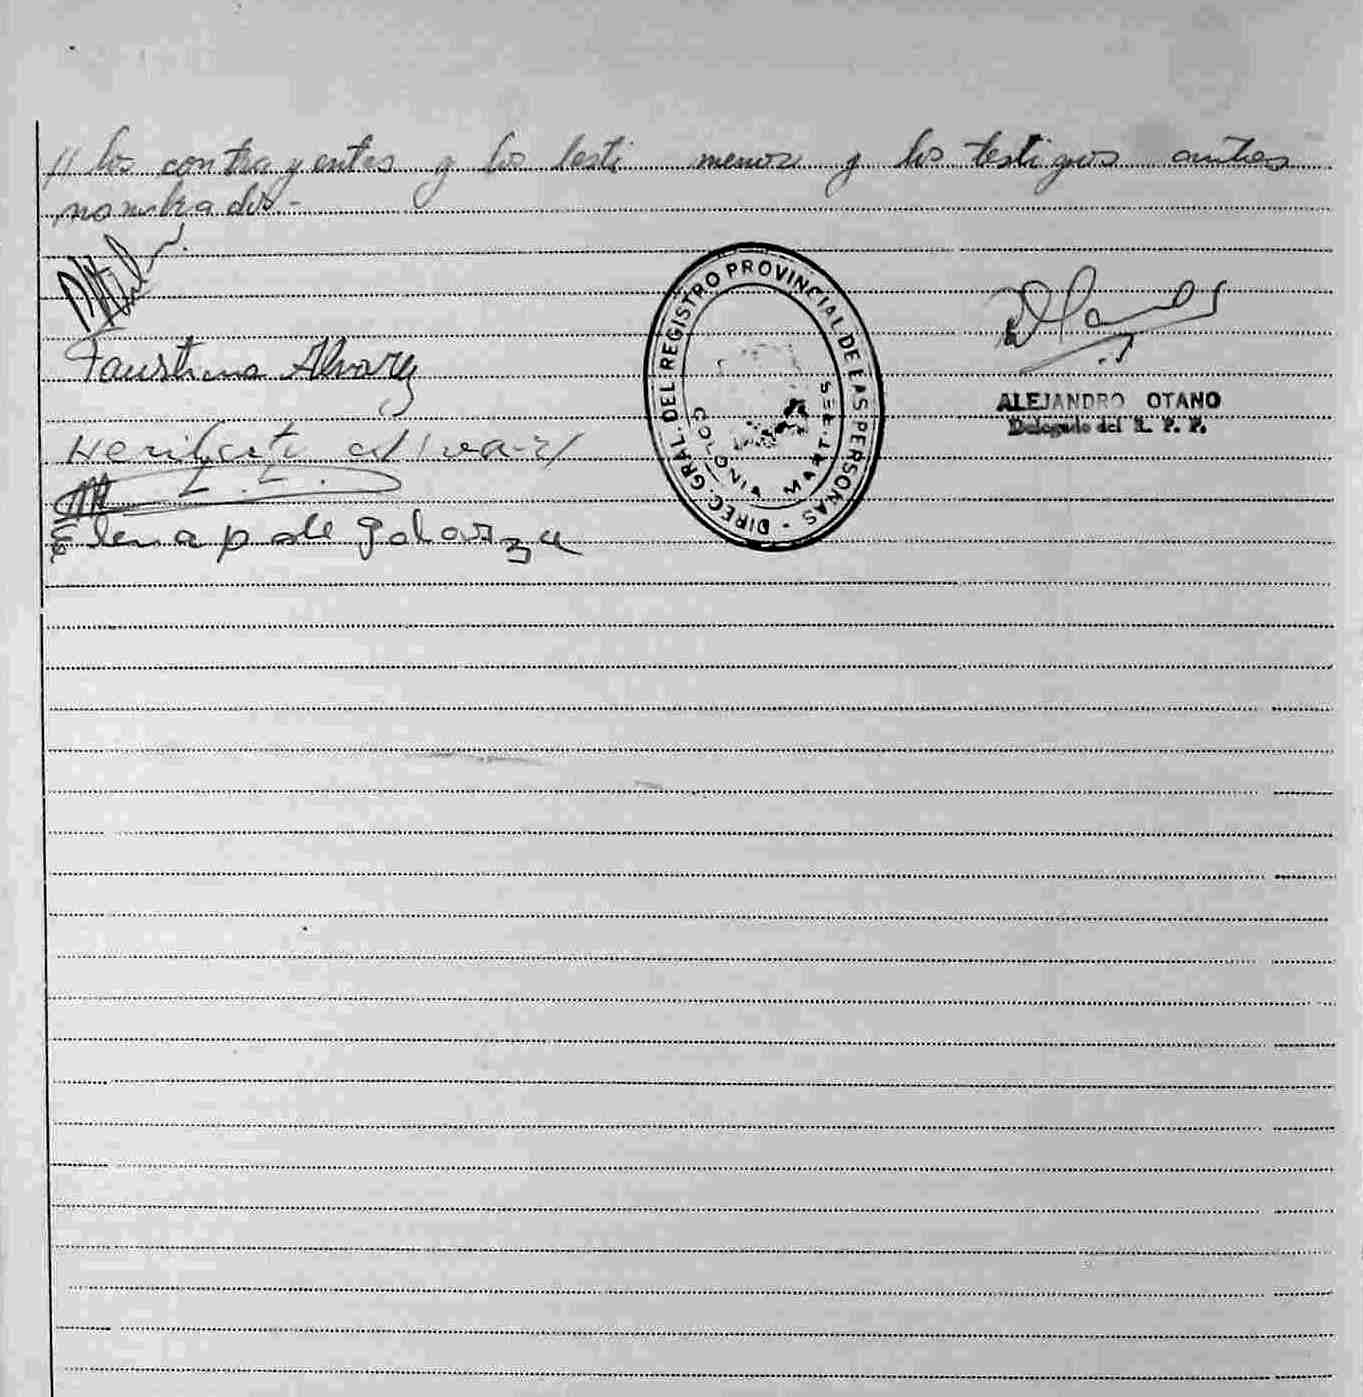 // los contrayentes y los testi menor y los testigos antes
nombrados.-
Faustina Alvarez
Heriberto Alvarez
Elena p de galarza
DIREC. GRAL. DEL REGISTRO PROVINCIAL DE LAS PERSONAS -
COLONIA MARTIRES
ALEJANDRO OTANO
Delegado del R. P. P.